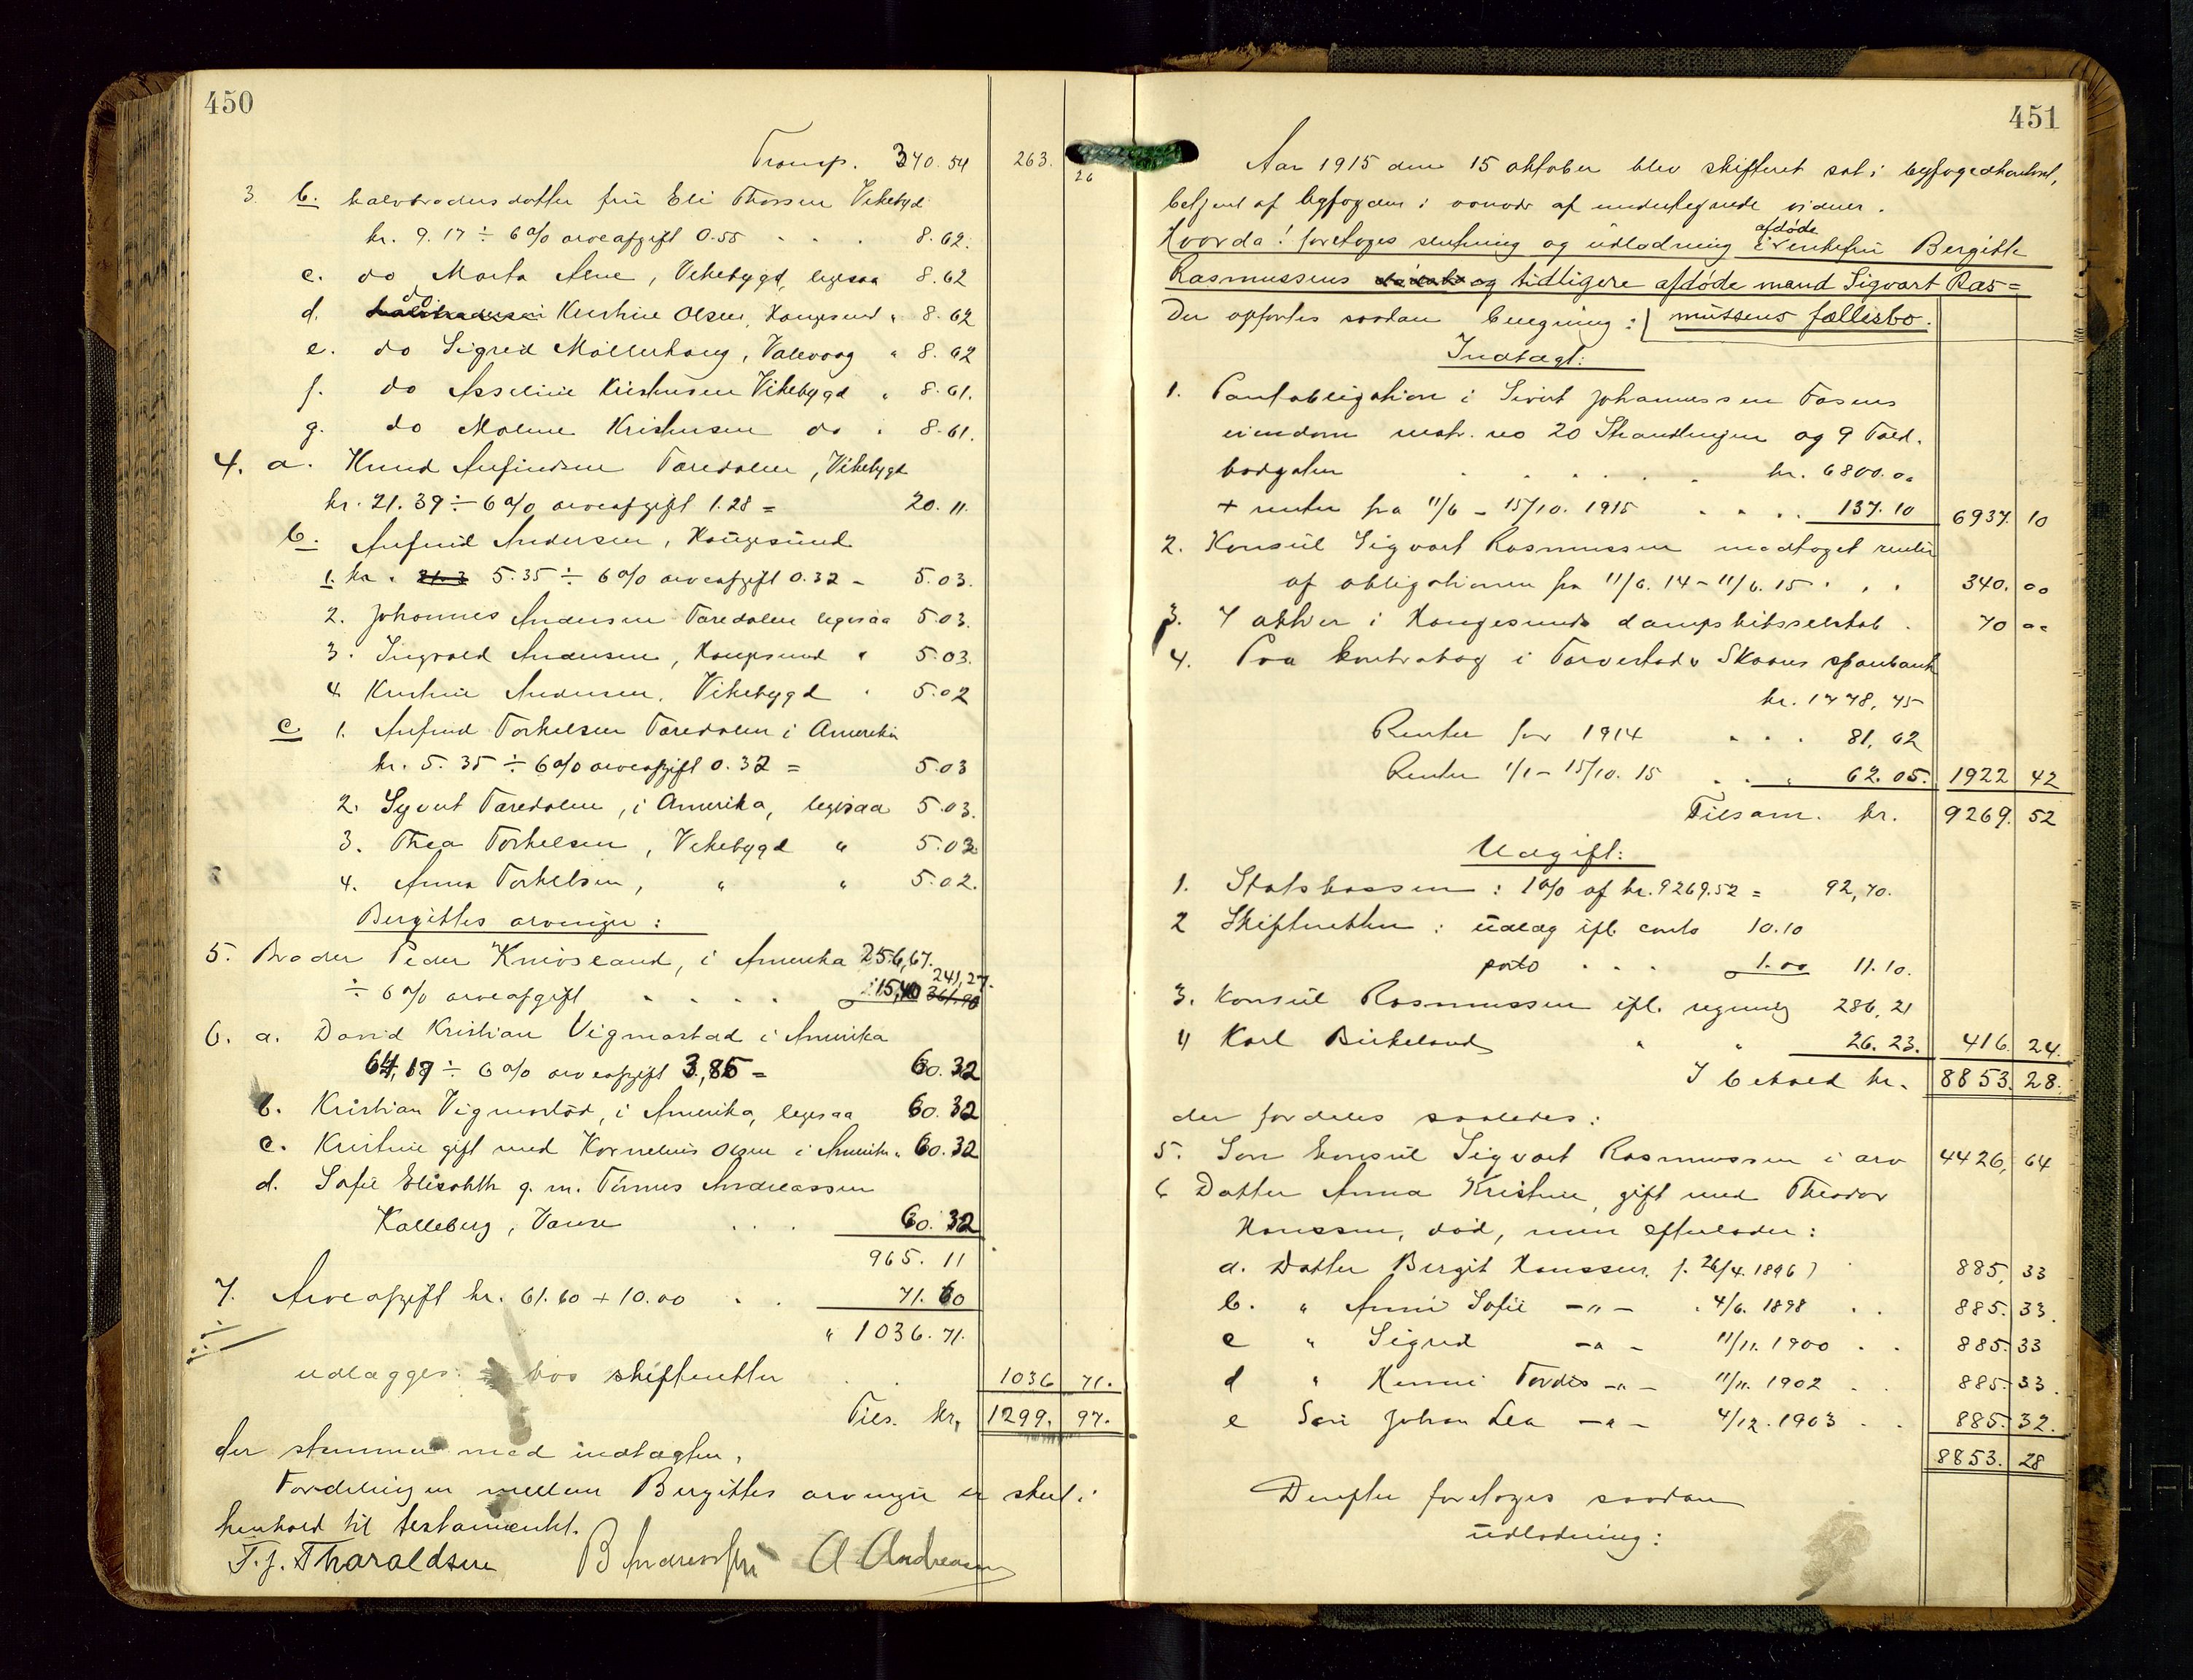 450
Transp. 340.54 263. 26
3 b. halvbroders datter frü Eli Thorsen Vikebygd
kr. 9.17 ÷ 6% arveafgift 0.55 . . . 8.62.
c. do Marta Alne, Vikebygd, ligesaa 8.62
d. do Kristine Olsen, Haugesund " 8.62
e. do Sigrid Møllerhaug, Valevaag " 8.62
f. do Asseline Kristensen Vikebygd " 8.61.
g. do Malene Kristensen do " 8.61.
4. a. Knud Anfindsen Faredalen, Vikebygd
kr. 21.39 ÷ 6% arveafgift 1.28 = 20.11.
b. Anfind Andersen, Haugesünd
1. kr. 5.35 ÷ 6% arveafgift 0.32 - 5.03.
2. Johannes Andersen Faredalen ligesaa 5.03.
3. Ingvald Andersen, Haugesund " 5.03.
4 Kristine Andersen. Vikebygd " 5.02
c 1. Anfind Torkelsen Faredalen i Amerika
kr. 5.35 ÷ 6% arveafgift 0.32 = 5.03
2. Syvert Faredalen, i Amerika, ligesaa 5.03.
3. Thea Torkelsen, Vikebygd " 5.03
4. Anna Torkelsen, " " 5.02.
Bergittes arvinger:
5. Broder Peder Kniosland, i Amerika 256,67.
÷ 6% arveafgift . . . . 15,40 241,27.
6. a. David Kristian Vigmostad i Amerika
64,17 ÷ 6% arveafgift 3,85 = 60.32
b. Kristian Vigmostad, i Amerika, ligesaa 60.32
c. Kristine gift med Kornelius Olsen i Amerika " 60.32
d. Sofie Elisabth g. m. Tønnes Andreassen
Kalleberg, Vanse . . . 60.32
965.11
7. Arveafgift kr. 61.60 + 10.00 . . 71.60
" 1036.71.
udlægges: hos skifteretten . . 1036 71.
Tils. kr. 1299. 97.
der stemmer med indtægten.
Fordelingen mellem Bergittes arvinger er skeet i
henhold til testamentet.
T. J. Tharaldsen A Andreasen
451
Aar 1915 den 15 oktober blev skifteret sat i byfogedkontoret,
betjent af byfogden i overvær af undertegnede vidner.
Hvorda: foretoges slutning og üdlodning i afdøde enkefrü Bergitte
Rasmussens og tidligere afdøde mand Sigvart Ras=
Der opførtes saadan beregning: müssens fællisbo.
Indtægt:
1. Pantobligation i Sivert Johannessen Fosens
eiendom matr. no 20 Strandlinjen og 9 Told.
bodgaten . . . . . . kr. 6800.00
+ renter fra 11/6 - 15/10. 1915 . . . . 137.10 6937. 10
2. Konsül Sigvart Rasmussen modtaget renter
af obligationen fra 11/6. 14 - 11/6. 15 . . . 340. 00
3. 7 aktier i Haugesunds dampskibsselskab . 70 00
4. Paa kontrabog i Torvestad & Skaares sparebank
kr. 1778,75
Renter for 1914 . . . 81,62
Renter 1/1 - 15/10. 15 . . . 62.05. 1922 42
Tilsam. kr. 9269. 52
Udgift:
1. Statskassen: 1% af kr. 9269.52 = 92,70.
2 Skifteretten: üdlæg ifl. conto 10.10
porto . . . 1.00 11.10.
3. Konsül Rasmussen ifl. regning 286,21
4 Karl Birkeland " " 26.23. 416. 24.
I behold kr. 8853. 28.
der fordeles saaledes:
5. Søn konsül Sigvart Rasmussen i arv 4426, 64
6 Datter Anna Kristine, gift med Theodor
Hanssen, död, men efterlader:
a. Datter Bergit Hanssen f. 26/4. 1896) 885, 33
b. " Anni Sofie -"- . 4/6. 1898 . . 885. 33.
c " Sigrid -"- 11/11. 1900 . . 885. 33
d " Henni Tordis -"- 11/11. 1902 . 885. 33.
e Søn Johan Lea -"- 4/12. 1903 . . 885. 32.
8853. 28
Derefter foretoges saadan
üdlodning: